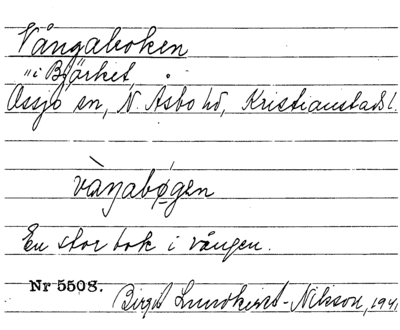 Vångaboken
"i Björket
Össjö sn, N. Åsbo hd, Kristianstads l.
vàŋabø̨gen
En stor bok i vången.
Nr 5508.
Birgit Lundkvist-Nilsson, 1941